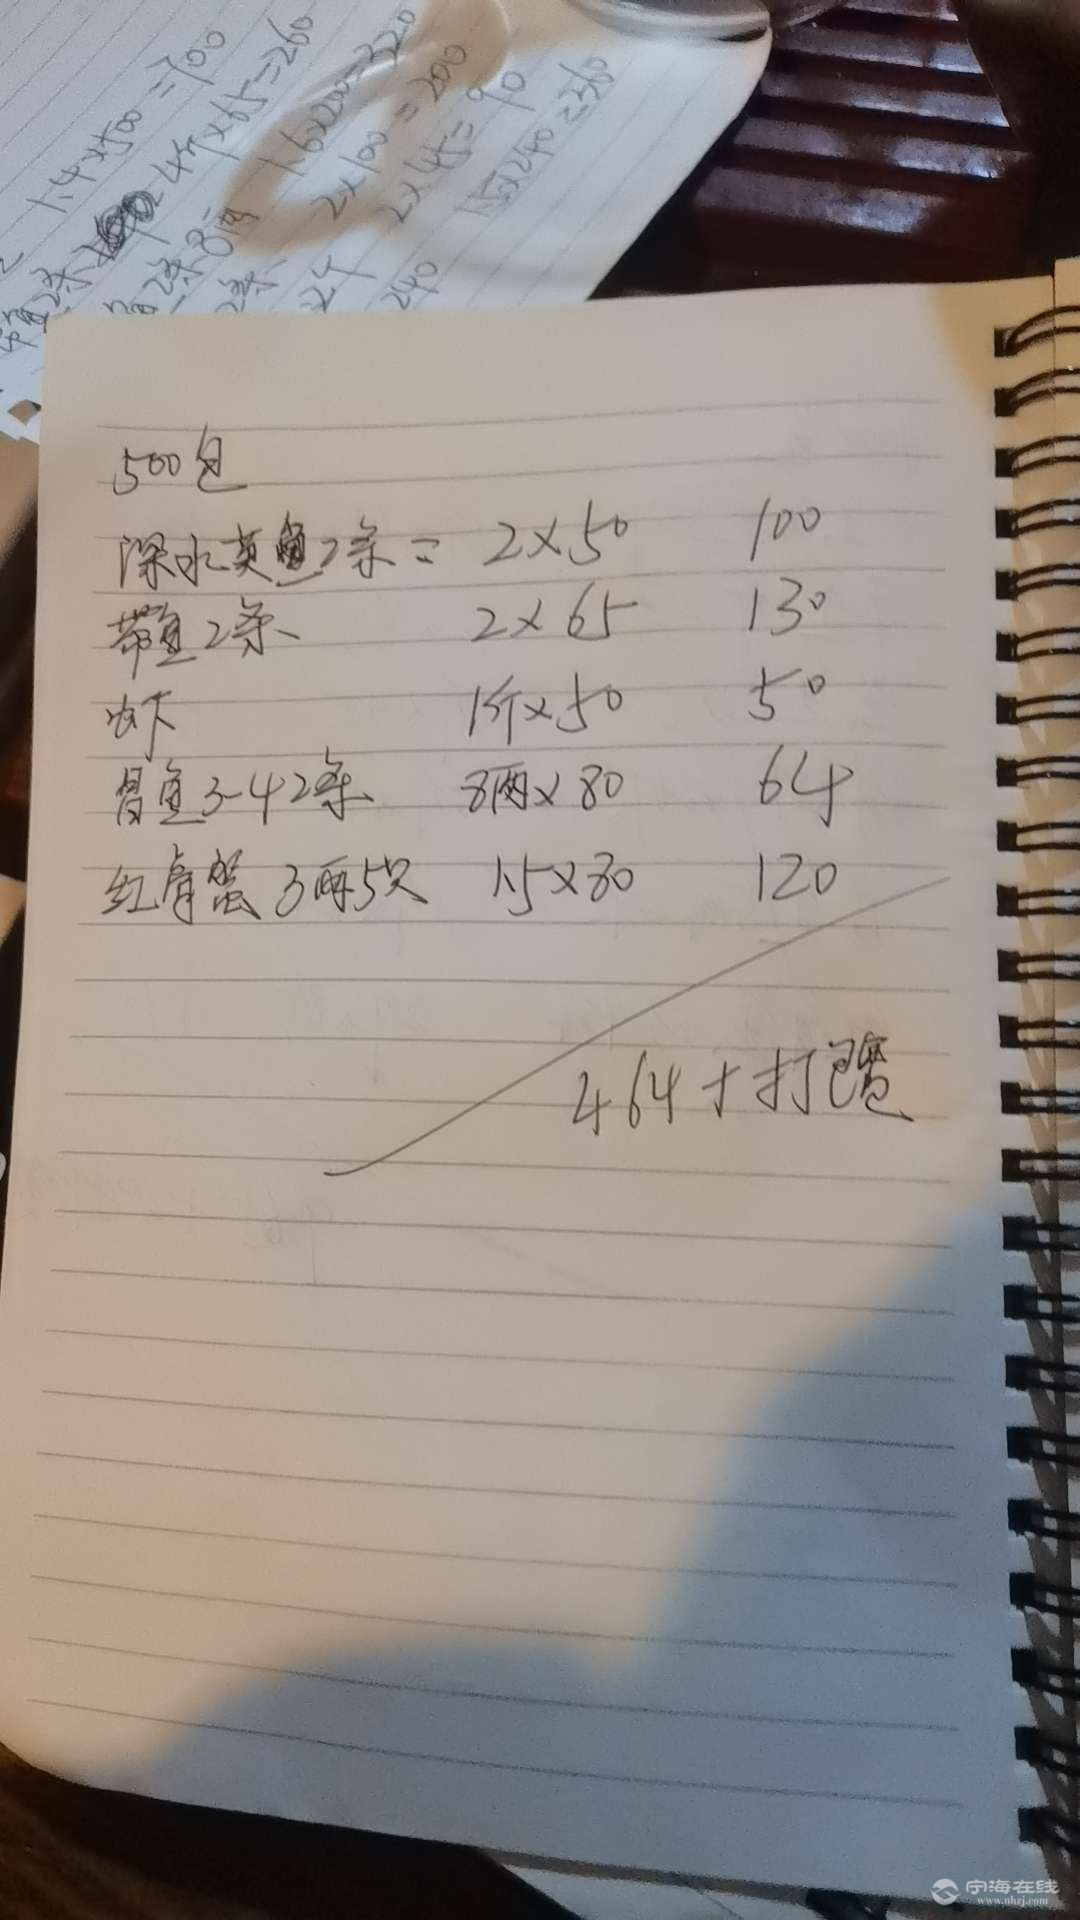 1.4×500=700
2条 4斤×65=260
2条 8两 1.6×200=320
2条 2×100=200
2斤 2×45=90
240 1.5×240=360
500包
深水黄鱼2条= 2×50 100
带鱼2条 2×65 130
虾 1斤×50 50
昌鱼3-4 2条 8两×80 64
红膏蟹 3两5只 1.5×80 120
464+打包
宁海在线
www.nhzj.com